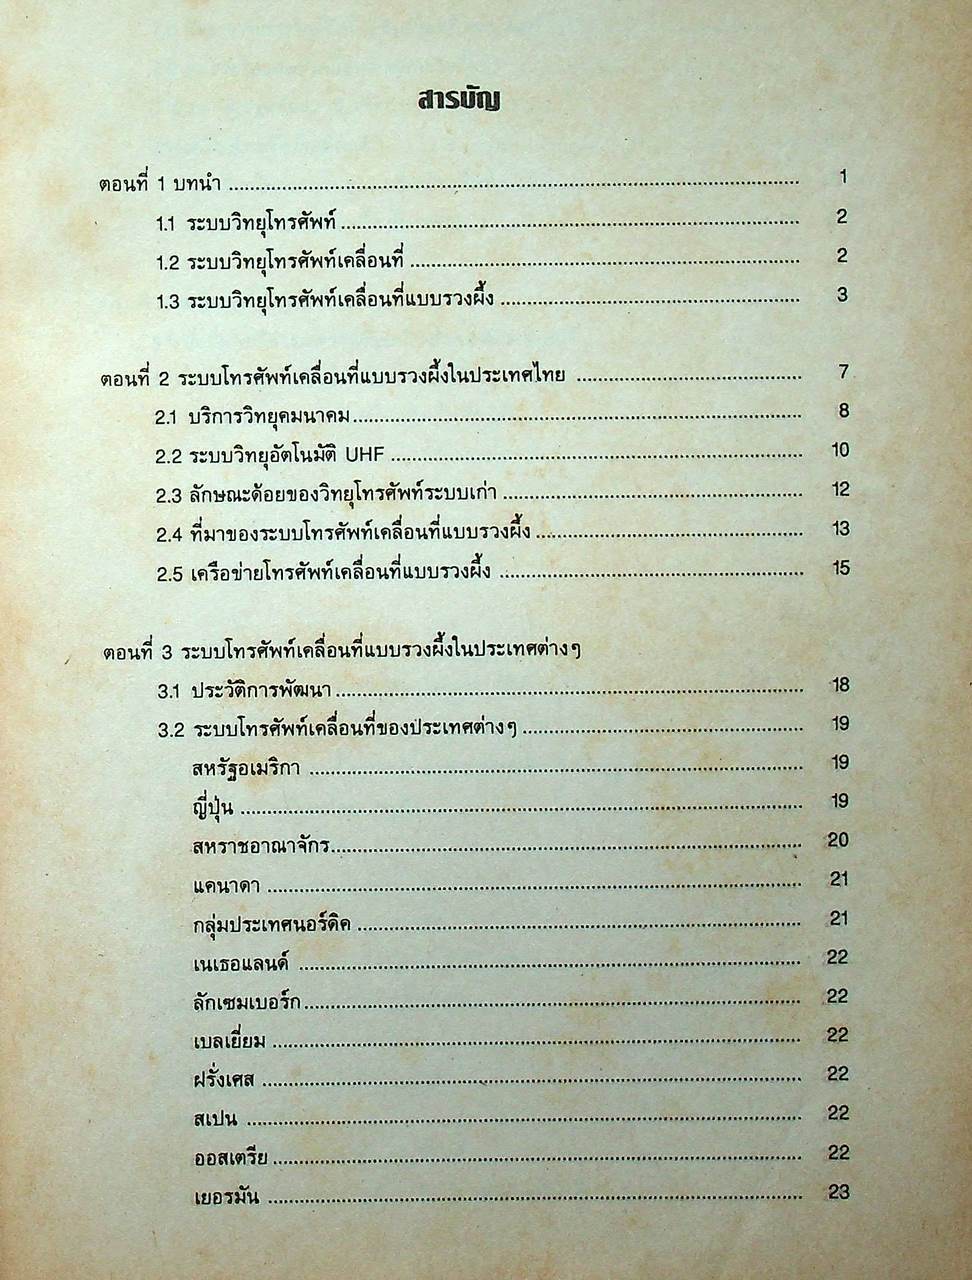 สารบัญ
ตอนที่ 1 บทนำ ........ 1
1.1 ระบบวิทยุโทรศัพท์ ........ 2
1.2 ระบบวิทยุโทรศัพท์เคลื่อนที่ ........ 2
1.3 ระบบวิทยุโทรศัพท์เคลื่อนที่แบบรวงผึ้ง ........ 3
ตอนที่ 2 ระบบโทรศัพท์เคลื่อนที่แบบรวงผึ้งในประเทศไทย ........ 7
2.1 บริการวิทยุคมนาคม ........ 8
2.2 ระบบวิทยุอัตโนมัติ UHF ........ 10
2.3 ลักษณะด้อยของวิทยุโทรศัพท์ระบบเก่า ........ 12
2.4 ที่มาของระบบโทรศัพท์เคลื่อนที่แบบรวงผึ้ง ........ 13
2.5 เครือข่ายโทรศัพท์เคลื่อนที่แบบรวงผึ้ง ........ 15
ตอนที่ 3 ระบบโทรศัพท์เคลื่อนที่แบบรวงผึ้งในประเทศต่างๆ
3.1 ประวัติการพัฒนา ........ 18
3.2 ระบบโทรศัพท์เคลื่อนที่ของประเทศต่างๆ ........ 19
สหรัฐอเมริกา ........ 19
ญี่ปุ่น ........ 19
สหราชอาณาจักร ........ 20
แคนาดา ........ 21
กลุ่มประเทศนอร์ดิค ........ 21
เนเธอแลนด์ ........ 22
ลักเซมเบอร์ก ........ 22
เบลเยี่ยม ........ 22
ฝรั่งเศส ........ 22
สเปน ........ 22
ออสเตรีย ........ 22
เยอรมัน ........ 23